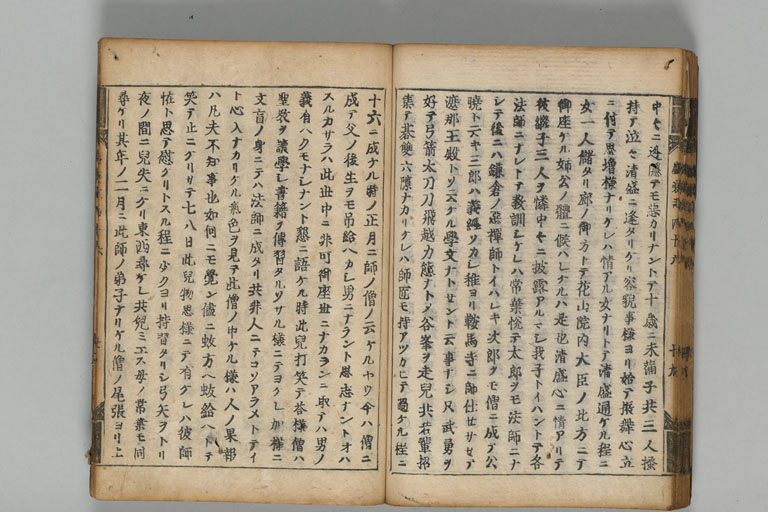 中々ニ過テモ悪カリナントテ十歳ニ未満子共三人
持テ泣々清盛ニ逢タリケリ容貌事様ヨリ始テ振舞心立
ニ付テ思増様ナリケレハ情アル女ナリトテ清盛通ケル程ニ
女一人儲タリ廊ノ御方トテ花山院内大臣ノ北方ニテ
御座ケル姉公ノ體ニ候ハレケルハ是也清盛心ニ情アリテ
彼継子三人ヲ憐中々ニ披露アルマシ我子トイハントテ各
法師ニナシトテ教訓シケレハ常葉悦テ太郎ヲモ法師ニナ
シテ後ニハ鎌倉ノ悪禅師トイハレキ次郎ヲモ僧ニ成テ公
暁ト云キ三郎ハ義経ソカシ推ヨリ鞍馬寺ニ師仕サセサセテ
遮那王殿トソ云ケル學文ナトセント云事ナシ只武勇ヲ
好テ弓箭太刀刀飛越力態ナトシ谷峯ヲ走兒共若輩招
集テ碁雙六隙ナカリケレハ師匠モ持アツカヒテ過ケル程ニ
十六ニ成ケル時ノ正月ニ師ノ僧ノ云ケルヤウ今ハ僧ニ
成テ父ノ後生ヲモ吊給ヘカシ男ニアラント思志ナントオハ
スルカサラハ此世中ニ非可御座世ニナカランニ取テハ男ノ
義有ハクモナシナント懇ニ語ケル時此兒打笑テ答様僧ハ
聖教ヲ讀學シ書籍ヲ傳習タルソサル様ニテヨクレ加様ニ
文盲ノ身ニテハ法師ニ成タリ共非人ニテコソアラメトテイ
ト心入ナカリケル氣色ヲ見テ此僧ノ申ケル様ハ人ノ果報
ハ凡夫不知事也如何ニモ覺ン儘ニ蚊方ヘ蚊給ヘトテ
笑テ止ニケリサテ七八日此兒物思様ニテ有ケレハ彼師
恠ト思テ慰ケリトスル程ニ少クヨリ持習タリシ弓矢ヲトリ
夜ノ間ニ兒失ニケリ東西尋ケレ共兒ミエス母ノ常葉モ同
尋ケリ其年ノ二月ニ此師ノ弟子ナリケル僧ノ尾張ヨリ上